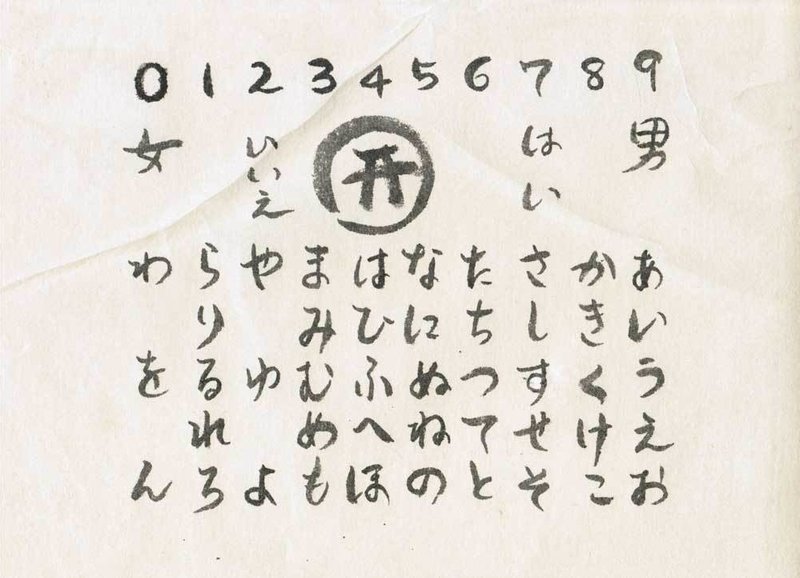 0 1 2 3 4 5 6 7 8 9
男
はい
いいえ
女
あいうえお
かきくけこ
さしすせそ
たちつてと
なにぬねの
はひふへほ
まみむめも
や ゆ よ
らりるれろ
わ を ん